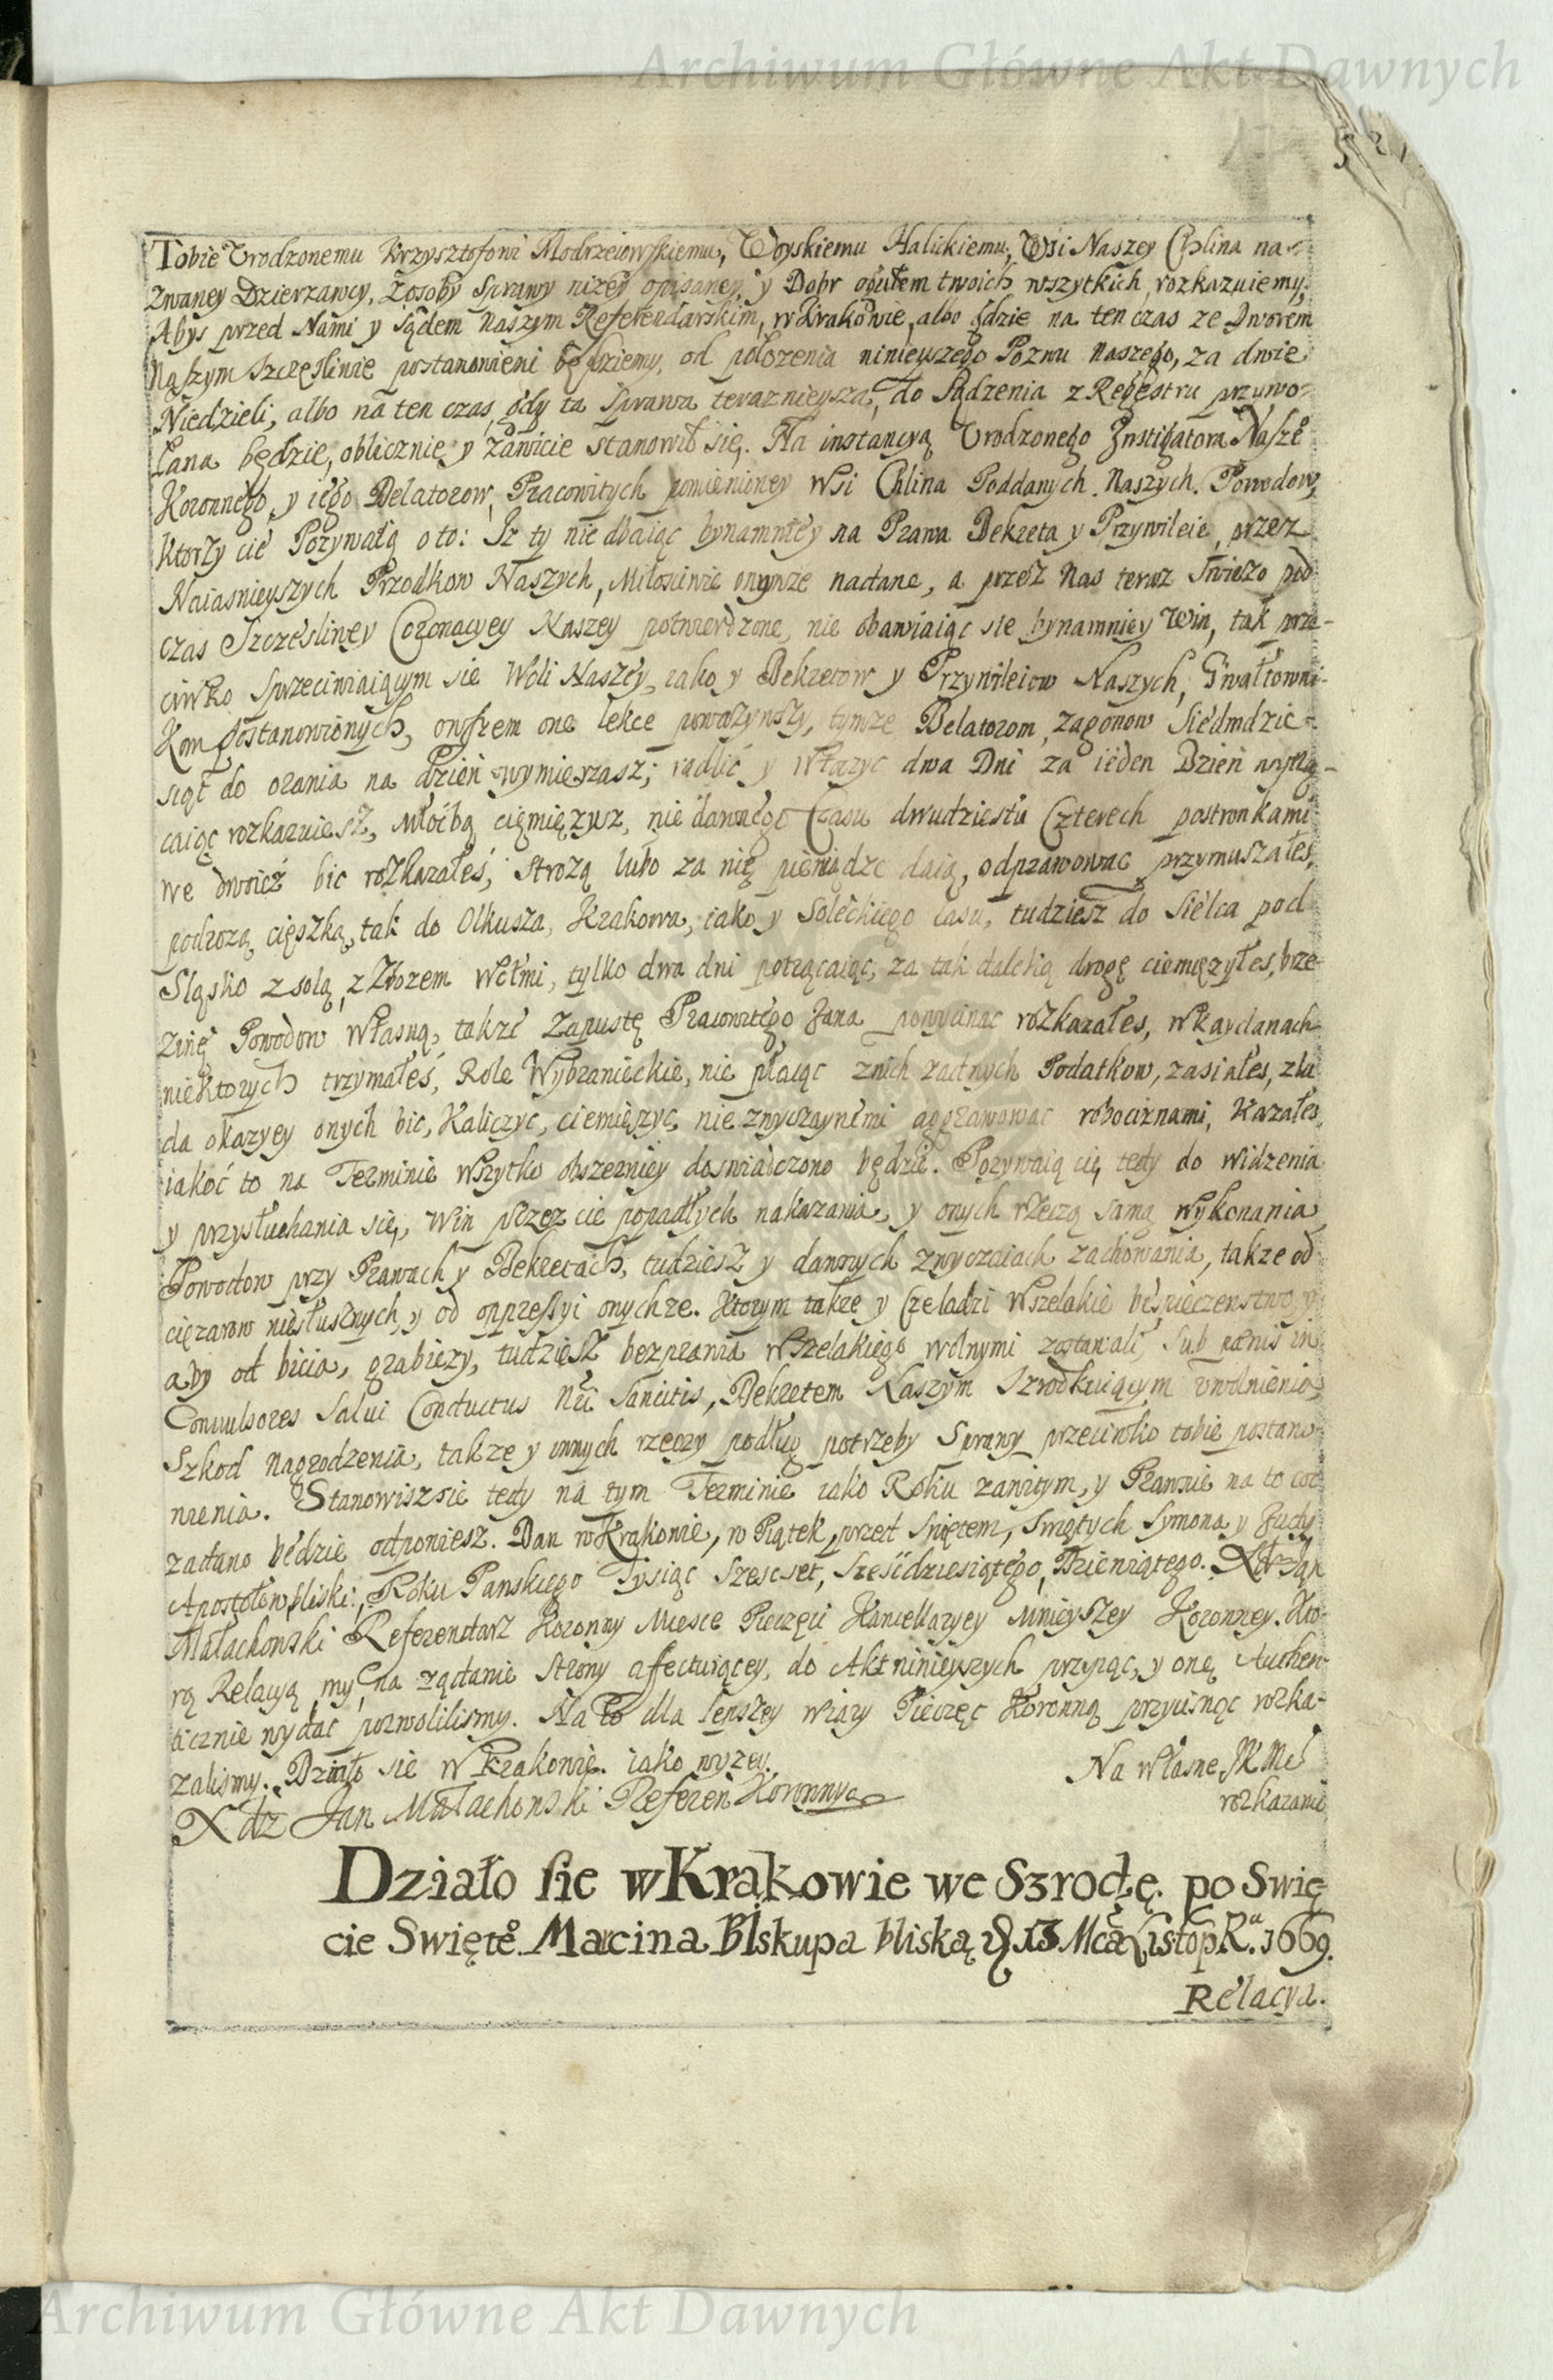 Archiwum Główne Akt Dawnych
Tobie Urodzonemu Krzysztofowi Modrzeiowskiemu, Woyskiemu Halickiemu, Wsi Naszey Chlina na-
zwaney Dzierzawcy, z osoby Sprawy nizey opisaney, y Dobr ogułem twoich wszytkich, rozkazuiemy,
Abys przed Nami y Sądem Naszym Referendarskim, w Krakowie, albo gdzie na ten czas ze Dworem
Naszym szczęśliwie postanowieni będziemy, od położenia ninieyszego Pozwu Naszego, za dwie
Niedzieli, albo na ten czas, gdy ta Sprawa teraznieysza, do Sądzenia z Regestru przywo-
łana będzie, oblicznie y zawicie stanowił się. Na instancyą Urodzonego Instigatora Nasze°
Koronnego, y iego Delatorow, Pracowitych pomienioney Wsi Chlina Poddanych Naszych. Powodow,
Ktorzy cie Pozywaią o to: Iz ty nie dbaiąc bynamniey na Prawa Dekreta y Przywileie, przez
Naiasnieyszych Przodkow Naszych, Miłosciwie onymze nadane, a przez Nas teraz swiezo pod
czas Szczesliwey Coronacyey Naszey potwierdzone, nie obawiaiąc sie bynamniey Win, tak prze-
ciwko Sprzeciwiaiącym sie Woli Naszey, iako y Dekretow y Przywileiow Naszych, Gwałtowni-
kom postanowionych, owszem one lekce powazywszy, tymze Delatorom, zagonow Siedmdzie-
siąt do orania na dzień wymierzasz; radlić y włozyc dwa Dni za ieden Dzień wytrą-
caiąc rozkazuiesz, Młoćbą ciemięzysz, niedawnego Czasu dwudziestu Czterech postronkami
we dworze bic rozkazałeś, Strozą lubo za nię pieniądze daią, odprawowac przymuszałes,
podrozą cięszką, tak do Olkusza, Krakowa, iako y Soleckiego lasu, tudziesz do Sielca pod
Sląsko z solą, z Zbozem Wełmi, tylko dwa dni potrącaiąc, za tak daleką drogę ciemięzyłes, brze-
zinę Powodow własną, takze Zapustę Pracowitego Jana powycinac rozkazałes, w kaydanach
niektorych trzymałeś, Role Wybranieckie, nie płacąc z nich zadnych Podatkow, zasiałes, z la
da okazyey onych bic, Kaliczyc, ciemięzyc, niezwyczaynemi aggrawowac robociznami, kazałes,
iakoć to na Terminie wszytko obszerniey doswiadczono będzie. Pozywaią cię tedy do widzenia
y przysłuchania się, Win przez cie popadłych nakazania, y onych rzeczą samą wykonania,
Powodow przy Prawach y Dekretach, tudziesz y dawnych zwyczaiach zachowania, takze od
cięzarow niesłusznych, y od oppressyi onychze. Ktorym takze y Czeladzi wszelakie bespieczenstwo, y
aby od bicia, grabiezy, tudziesz bezprawia wszelakiego wolnymi zostawali, sub pœnis in
Convulsores Salvi Conductus Nri Sancitis, Dekretem Naszym Szrodkuiącym uwolnienia,
Szkod nagrodzenia, takze y innych rzeczy podług potrzeby Sprawy przeciwko tobie postano-
wienia. Stanowisz sie tedy na tym Terminie iako Roku zawitym, y Prawnie na to coć
zadano będzie odpowiesz. Dan w Krakowie, w Piątek przed Swiętem, Swiętych Symona y Judy
Apostołow bliski: Roku Panskiego Tysiąc Szescset, Szescdziesiątego, Dziewiątego. X dz Jan
Małachowski Referendarz Koronny Miesce Pieczęci Kancellaryey Mnieyszey Koronney. Kto-
rą Relacyą my, na ządanie Strony affectuiącey, do Akt ninieyszych przyiąc, y onę Authen-
ticznie wydac pozwolilismy. Na to dla lepszey wiary Pieczęc Koronną przycisnąc rozka-
zalismy. Działo sie w Krakowie. iako wyzey.
Na własne JKMci
rozkazanie
X dz Jan Małachowski Referen Koronny
Działo sie w Krakowie we Szrodę po Swię
cie Swięte° Marcina Biskupa bliską D. 13 Mcą Listop Ra. 1669.
Relacya.
Archiwum Główne Akt Dawnych